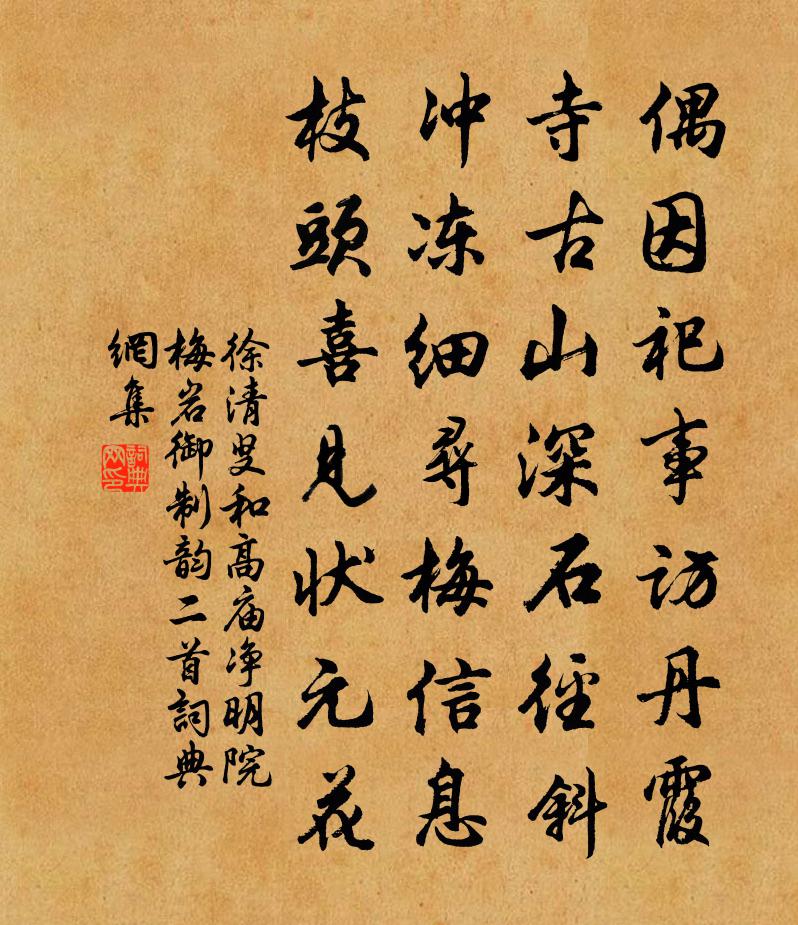 偶因祀事访丹霞
寺古山深石徑斜
冲冻细尋梅信息
枝頭喜見状元花
徐清叟和高庙净明院
梅岩御制韵二首詞典
網集
詞典网印